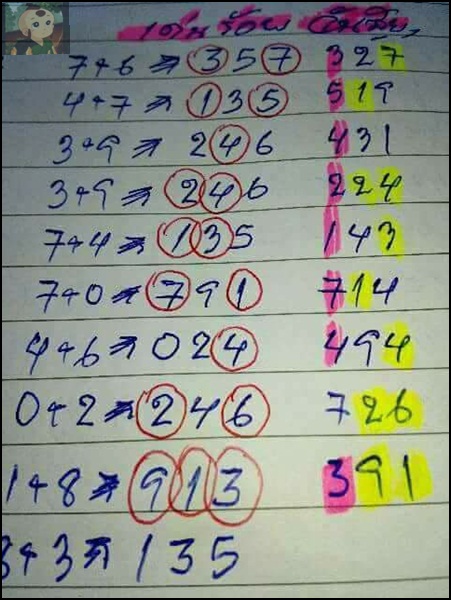 เด่นร้อย
7+6 ⇒ 357 327
4+7 ⇒ 135 519
3+9 ⇒ 246 431
3+9 ⇒ 246 224
7+4 ⇒ 135 143
7+0 ⇒ 791 714
4+6 ⇒ 024 494
0+2 ⇒ 246 726
1+8 ⇒ 913 391
3+3 ⇒ 135